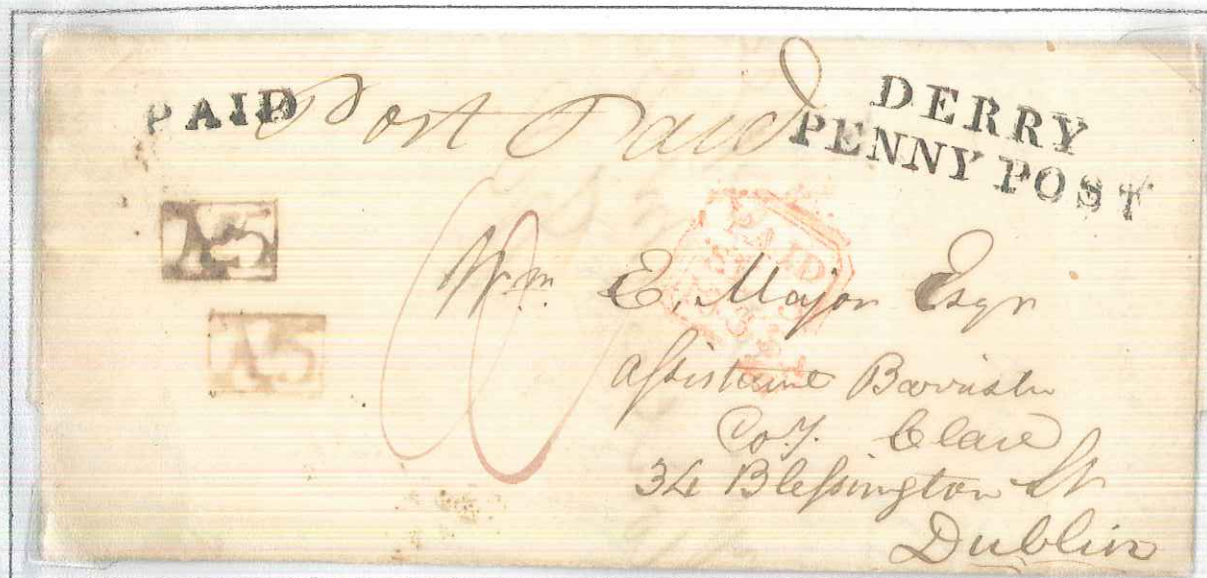 PAID
Post Paid
DERRY
PENNY POST
A5
A5
PAID
Wm. E. Major Esqr
Aſsistant Barrister
Coy. Clare
34 Bleſsington St
Dublin